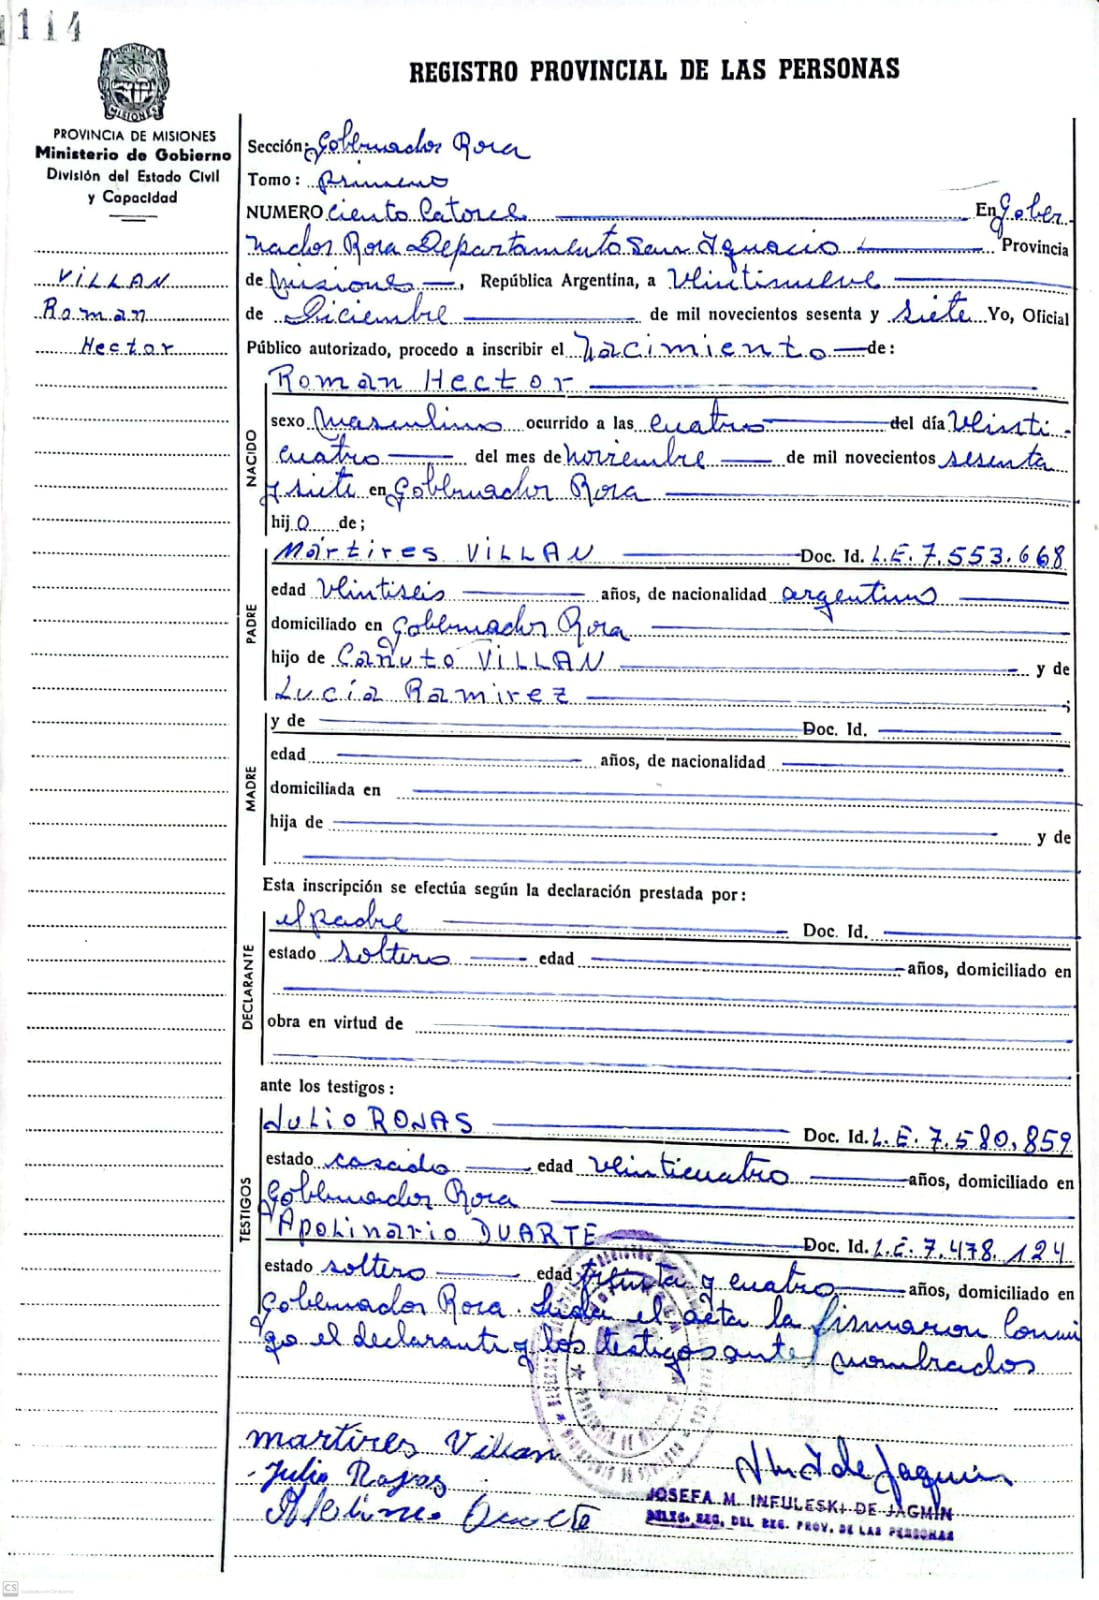 114
REGISTRO PROVINCIAL DE LAS PERSONAS
MISIONES
PROVINCIA DE MISIONES
Ministerio de Gobierno
División del Estado Civil
y Capacidad
VILLAN
Roman
Hector
Sección: Gobernador Roca
Tomo: primero
NUMERO ciento catorce En Gober
nador Roca Departamento San Ignacio Provincia
de Misiones, República Argentina, a veintinueve
de Diciembre de mil novecientos sesenta y siete Yo, Oficial
Público autorizado, procedo a inscribir el nacimiento de:
NACIDO
Roman Hector
sexo masculino ocurrido a las cuatro del día veinti
cuatro del mes de noviembre de mil novecientos sesenta
y siete en Gobernador Roca
hijo de;
PADRE
Mártires VILLAN Doc. Id. L.E. 7.553.668
edad veintiseis años, de nacionalidad argentino
domiciliado en Gobernador Roca
hijo de Cañuto VILLAN y de
Lucía Ramirez ;
MADRE
y de Doc. Id.
edad años, de nacionalidad
domiciliada en
hija de y de
Esta inscripción se efectúa según la declaración prestada por:
DECLARANTE
el padre Doc. Id.
estado soltero edad años, domiciliado en
obra en virtud de
ante los testigos:
TESTIGOS
Julio ROJAS Doc. Id. L.E. 7.580.859
estado casado edad veinticuatro años, domiciliado en
Gobernador Roca
Apolinario DUARTE Doc. Id. L.E. 7.478.124
estado soltero edad treinta y cuatro años, domiciliado en
Gobernador Roca. Leida el acta la firmaron conmi
go el declarante y los testigos ante nombrados
martires Villan
Julio Rojas
de Jagmin
JOSEFA M. INFULESKI DE JAGMIN
DELEG. REG. DEL REG. PROV. DE LAS PERSONAS
CS